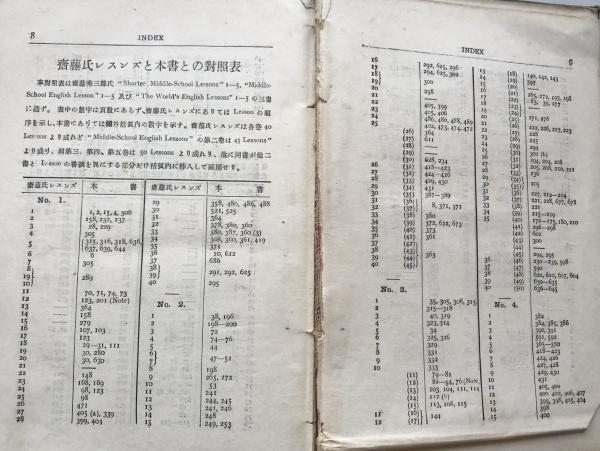 8
INDEX
齋藤氏レスンズと本書との對照表
本對照表は齋藤秀三郎氏 "Shorter Middle-School Lessons" 1—5, "Middle-
School English Lesson" 1—5 及び "The World's English Lessons" 1—5 の
に過ぎず。表中の數字は頁數にあらず、齋藤氏レスンズにありては Lesson の順
序を示し、本書にありては欄外括弧内の數字を示す。齋藤氏レスンズは各卷 40
Lessons より成れど "Middle-School English Lessons" の第二卷は 45 Lessons
より成り、第三、第四、第五卷は 50 Lessons より成れり。故に同書が他二
書と Lesson の番號を異にする部分だけ括弧内に挿入して區別せり。
齋藤氏レスンズ 本 書 齋藤氏レスンズ 本 書
No. 1.
1 1, 2, 15, 4, 306
2 158, 232, 237
3 28, 229
4 305
5 315, 316, 318, 636,
637, 639, 644
6 6
7 305
8
19
10 289
11 70, 71, 74, 73
12 123, 201 (Note)
13 364
14 158
15 279
16 107, 103
17 123
18 29—31, 111
19 30, 280
20 30, 630
21
22 148
23 168, 169
24 98, 123
25 98
26 471
27 405 (a), 339
28 399, 404
29 358, 480, 486, 488
30 521, 525
31 364
32 378, 380, 360
33 380, 387, 360 (3)
34 308, 360, 361, 419
35 371
36 10, 612
37 686
38
39 291, 292, 625
40 295
No. 2.
1 38, 196
2 198—200
3 72
4 74—76
5 44
6
7 47—51
8 198
9 265, 272
10 53
11 241
12 244, 245
13 241, 246
14 248
15 249, 253
INDEX
9
16
17 292, 625, 296
18 294, 625, 302
19 300
20
21 298
22
23 405, 399
24 405, 406
25 486, 480, 488, 489
402, 473, 474, 472
(26) 364
(27) 611
(28)
(29)
(30) 628, 234
26 (31) 418—423
27 (32) 424—426
28 (33) 429, 430
29 (34) 431
30 (35) 387—389
31 (36)
32 (37) 8, 371, 372
33 (38) 380
34 (39) 372, 672, 673
35 (40) 373
36 (41) 361
37 (42)
38 (43)
39 (44) 363
40 (45)
No. 3.
1 35, 305, 306, 315
2 315—318
3 40, 319
4 323, 314
5 34
6 325, 326
7 329
8 331
9 332
10 333
(11) 79—81
(12) 82—94, 76 (Note
(13) 103, 104, 111, 114
(14) 112 (b)
(15) 113, 106, 115
11 (16) 144
12 (17)
13 (18) 140, 142, 143
14 (19) 597
15 (20)
(21) 265, 272, 195, 198
(22) 83, 39, 277
271, 276
223, 226, 227, 223
228
225
294
301 (b)
194, 204, 208
205, 208, 210, 211
236
205
227, 212—214
221, 228, 677, 678
221
215—219
40 172—175, 180, 210
(41) 296—298
(42) 602
(43) 300
(44)
(45) 294, 295
36 (46) 230—239, 598
37 (47) 590
38 (48) 610, 607, 604
39 (49) 630—635
40 (50) 636—645
No. 4.
1 382
2 384, 385, 386
3 390, 391
4 591, 592
5 365—370
6 418—423
7 424, 426
8 427, 428
9 429, 430
10 431
11 405, 400
12 400 402, 406, 407
13 399, 398, 405, 404
14 398
15 400